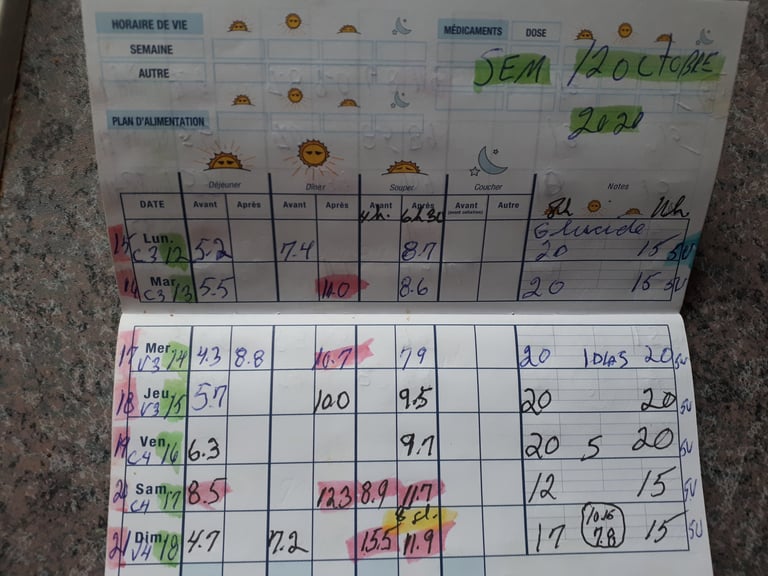 HORAIRE DE VIE MÉDICAMENTS DOSE
SEMAINE
AUTRE
SEM 12 OCTOBRE
2020
PLAN D'ALIMENTATION
Déjeuner Dîner Souper Coucher Notes
DATE Avant Après Avant Après Avant Après Avant (avant collation) Autre
4h. 6h30 8h 11h
Glucide
15 Lun. C3 12 5.2 7.4 8.7 20 15 5U
16 Mar C3 13 5.5 11.0 8.6 20 15 5U
17 Mer V3 14 4.3 8.8 10.7 7.9 20 20 5U
18 Jeu V3 15 5.7 10.0 9.5 20 20 5U
19 Ven C4 16 6.3 9.7 20 5 20 5U
20 Sam C4 17 8.5 12.3 8.9 11.7 12 15 5U
21 Dim V4 18 4.7 7.2 15.5 11.9 17 10.15 7.8 15 5U